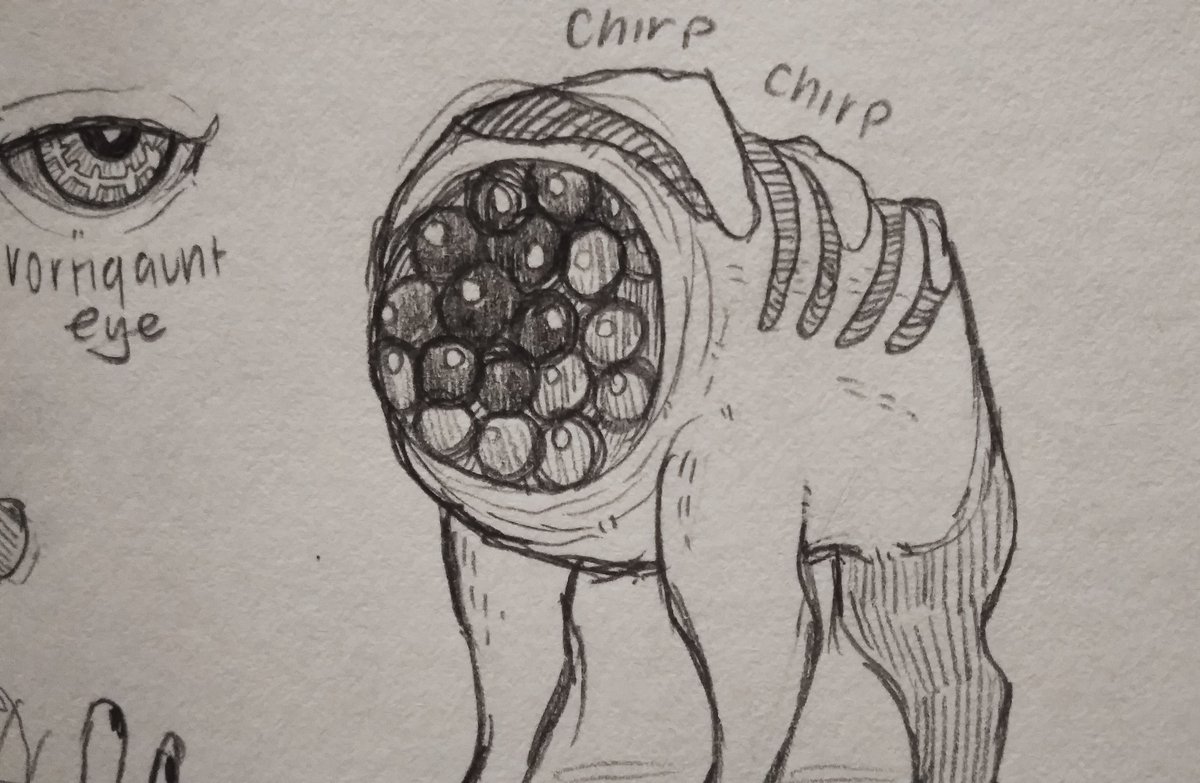 Chirp
Chirp
vortigaunt
eye